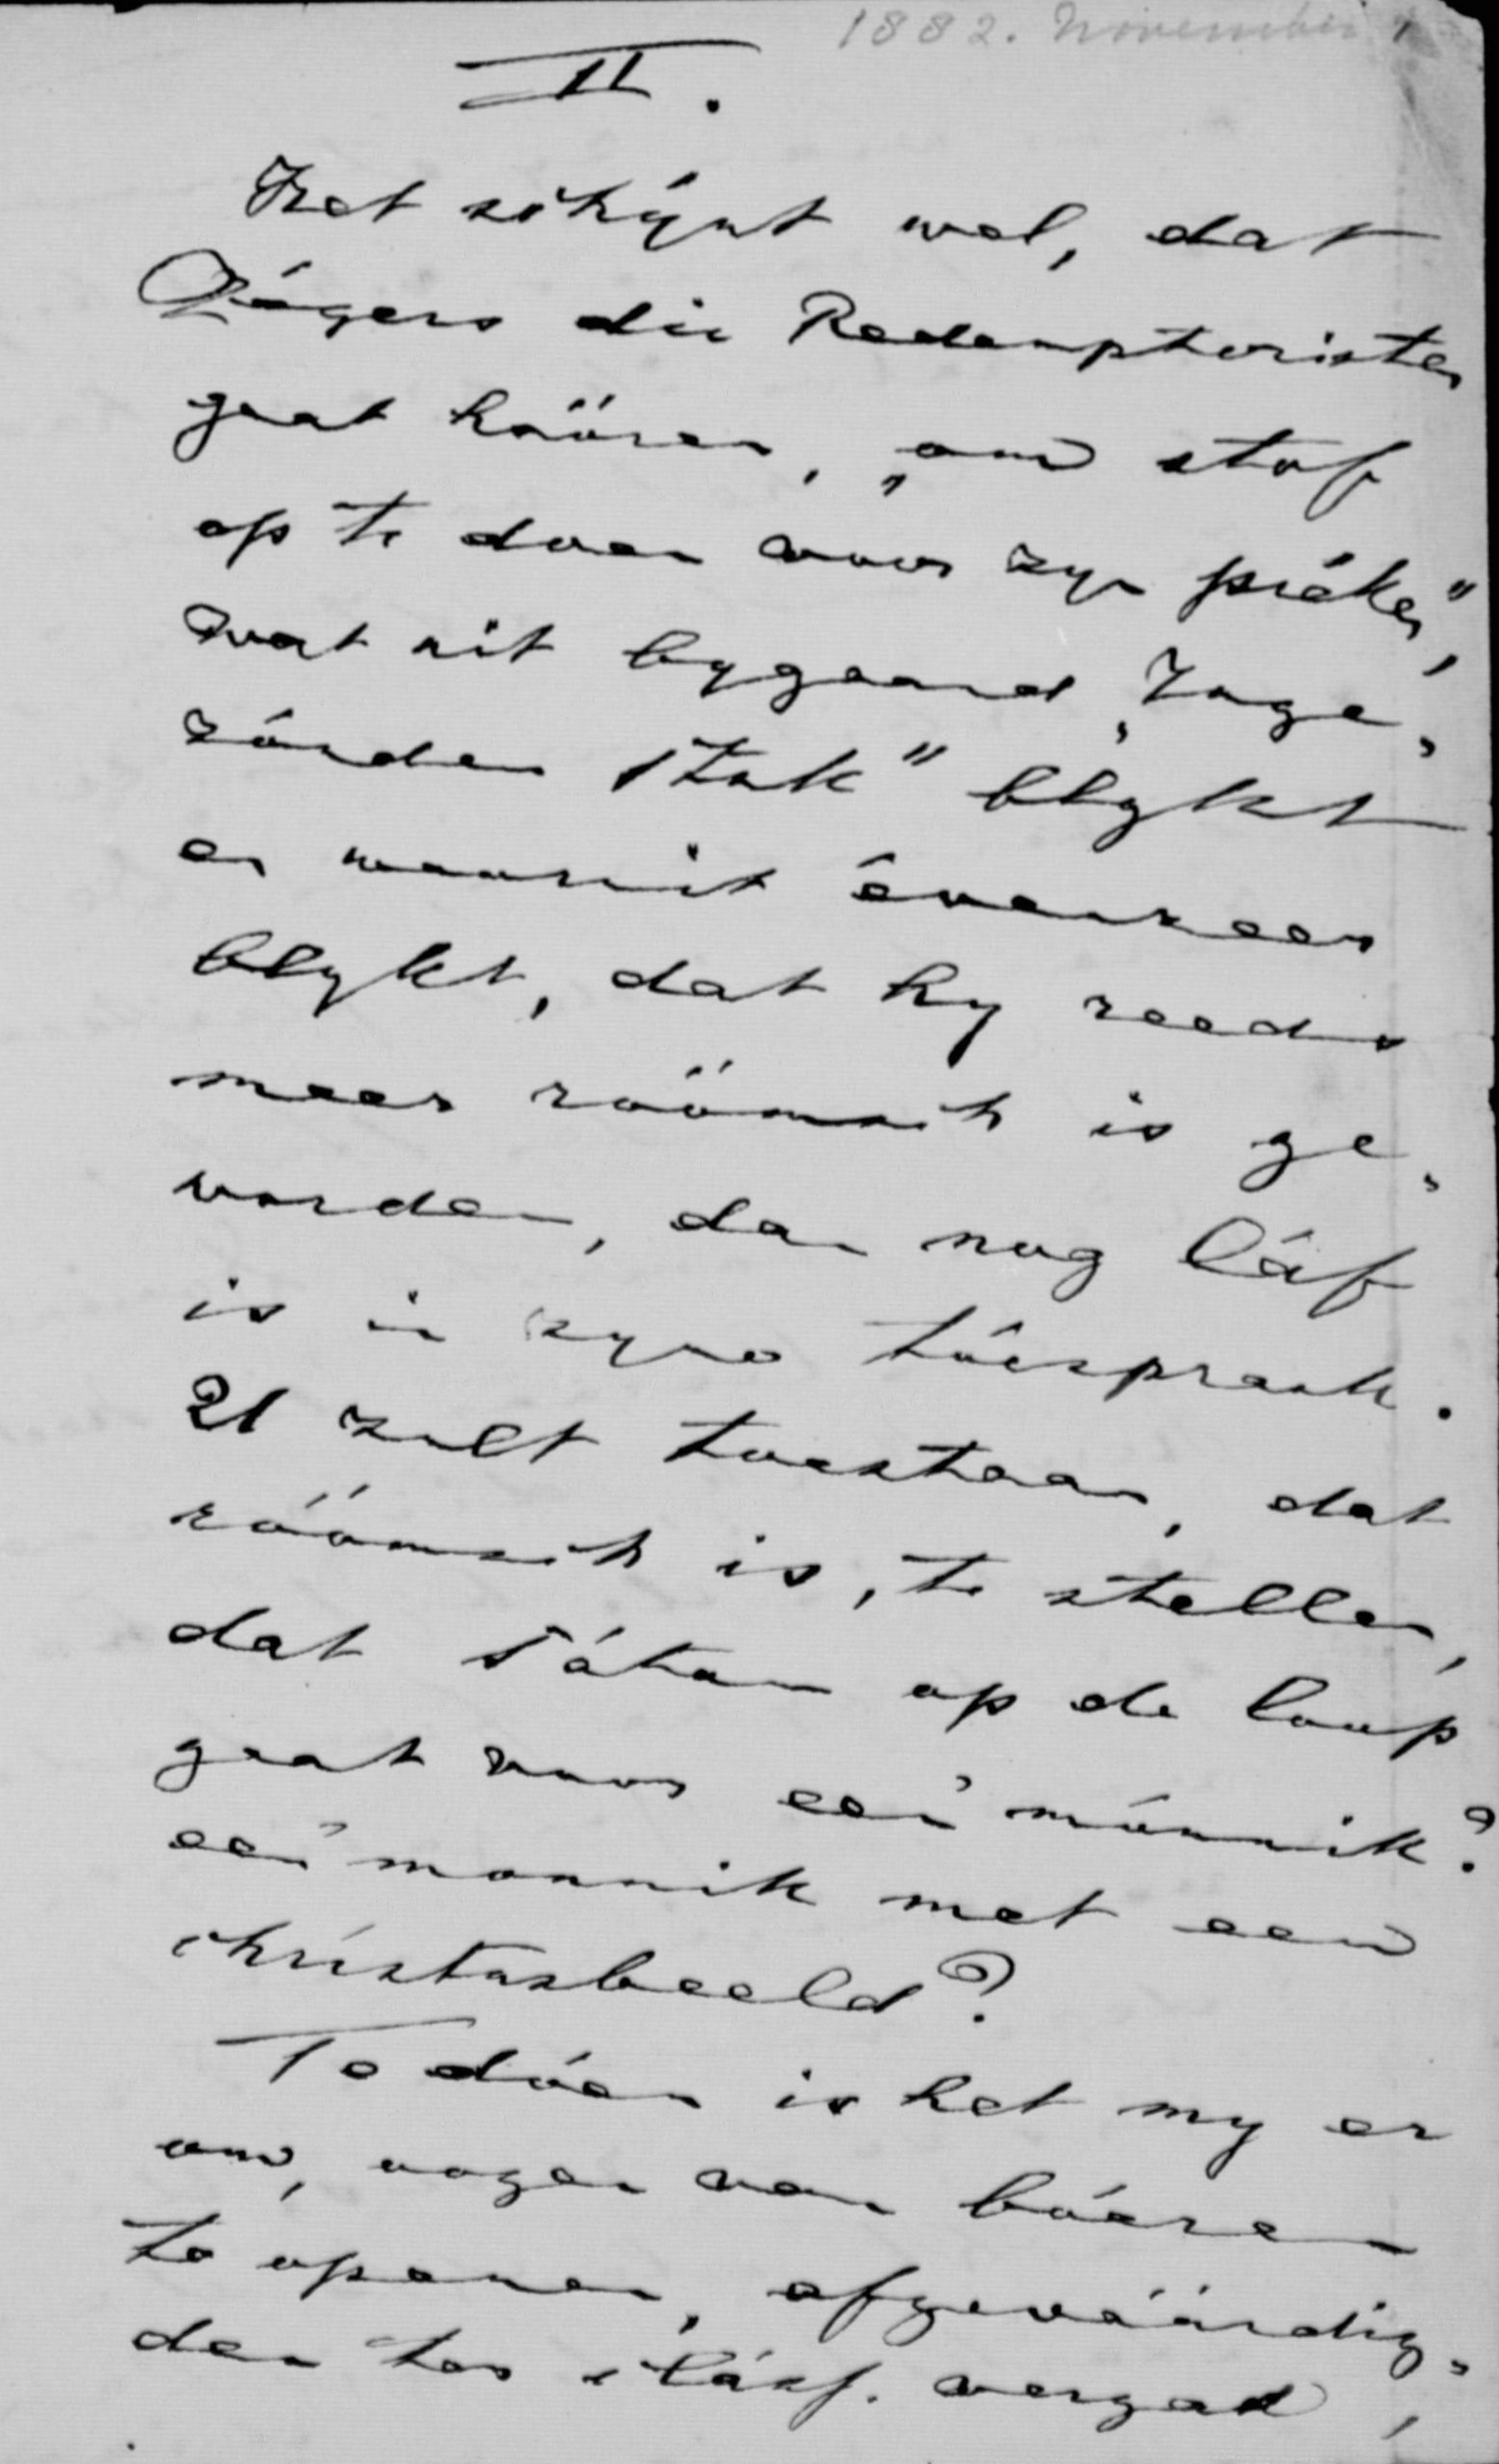 1882. November
II.
Het schijnt wel, dat
die Redemptoristen
gaat hóóren, „om stof
op te doen voor zyn préken",
wat uit bygaand „Inge„
zónden stuk" blykt
en waaruit évenzeer
blykt, dat hy reeds
meer róómsch is ge„
worden, dan nog láf
is in zyne tóespraak.
U zult toestaan, dat
róómsch is, te stellen,
dat Sátan op de loop
gaat voor een mónnik?
een monnik met een
christusbeeld?
Te dóen is het my er
om, oogen van bóeren
te openen, afgeváárdig„
den ter clássΙ. vergad,